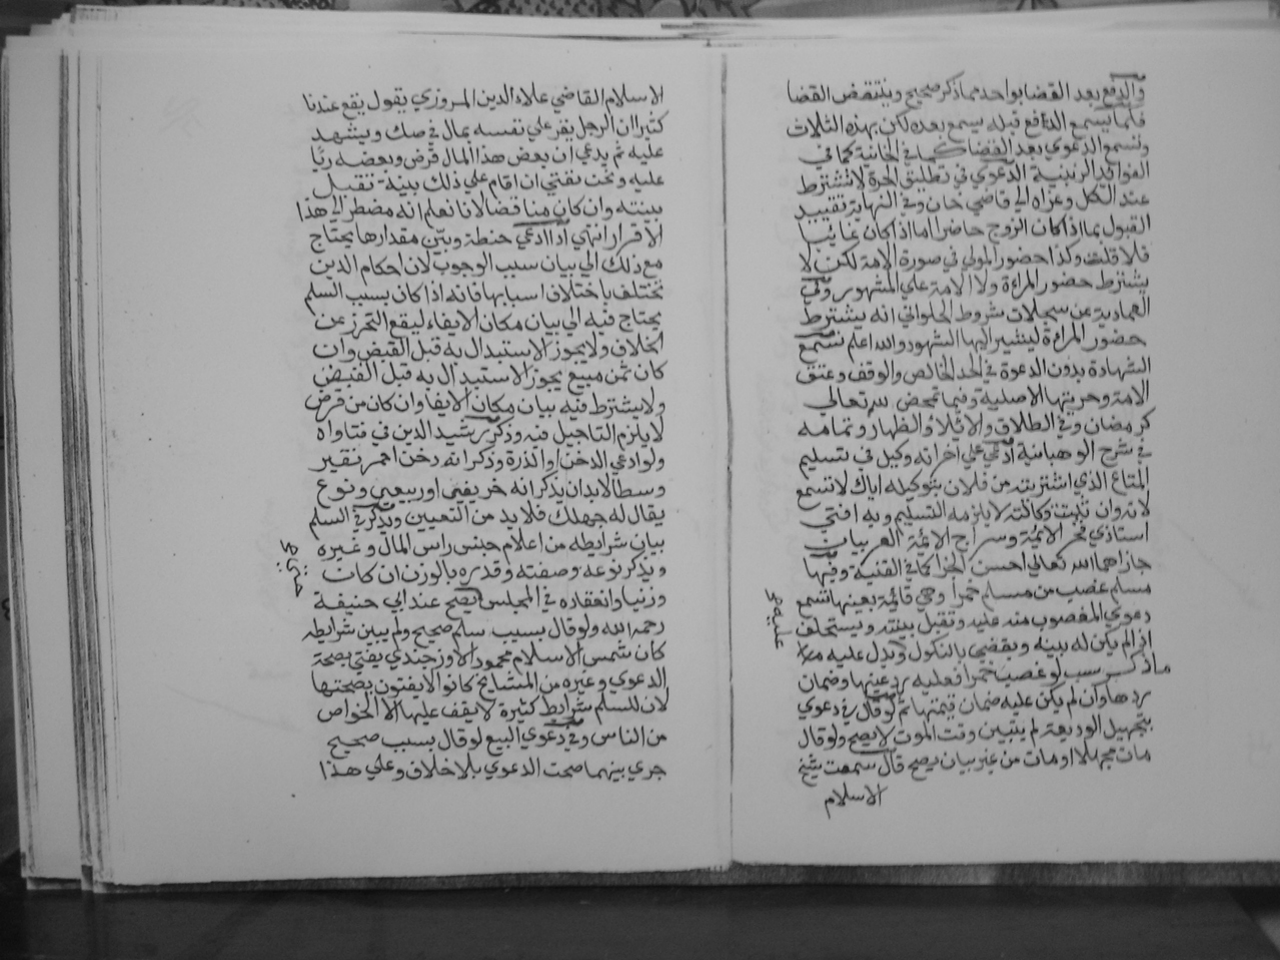 والدفع بعد القضا بواحد مما ذكر صحيح وينتقض القضا
فكما يسمع الدافع قبله يسمع بعده لكن بهذه الثلاث
وتسمع الدعوي بعد القضا كما في الخانية كما في
الفوايد الزينية الدعوي في تطليق الحرة لا تشترط
عند الكل وعزاه الي قاضي خان وفي النهاية تقييد
القبول بما اذا كان الزوج حاضرا اما اذا كان غائبا
فلا قلت وكذا حضور المولي في صورة الامة لكن لا
يشترط حضور المراءة ولا الامة علي المشهور وفي
العمادية عن سجلات شروط الحلواني انه يشترط
حضور المراءة ليشير اليها الشهود والله اعلم تسمع
الشهادة بدون الدعوة في الحد الخالص والوقف وعتق
الامة وحريتها الاصلية وفيما تمحض لله تعالي
كرمضان وفي الطلاق والايلاء والظهار وتمامه
في شرح الوهبانية ادعي علي اخر انه وكيل في تسليم
المتاع الذي اشتريته من فلان بتوكيله اياك لا تسمع
لانه وان ثبت وكالته لا يلزمه التسليم وبه افتي
استاذي فخر الائمة وسراج الائمة العربيان
جازاهما الله تعالي احسن الجزا كما في القنية وفيها
مسلم غصب من مسلم خمرا وهي قائمة بعينها تسمع
دعوي المغصوب منه عليه وتقبل بينته ويستحلف
ان لم يكن له بينه ويقضي بالنكول ويدل عليه
ما ذكر لو غصب خمرا فعليه رد عينها وضمان
ردها وان لم يكن عليه ضمان قيمتها ثم لو قال في دعوي
بتجهيل الوديعة لم يتبين وقت الموت لا يصح ولو قال
مات مجهلا او مات من غير بيان يصح قال سمعت شيخ
الاسلام
الاسلام القاضي علاء الدين المروزي يقول يقع عندنا
كثيرا ان الرجل يقر علي نفسه بمال في صك ويشهد
عليه ثم يدعي ان بعض هذا المال قرض وبعضه ربًا
عليه ونحن نفتي ان اقام علي ذلك بينة تقبل
بينته وان كان مناقضا لانا نعلم انه مضطر الي هذا
الاقرار انتهي اذا ادعي حنطة وبيّن مقدارها يحتاج
مع ذلك الي بيان سبب الوجوب لان احكام الدين
تختلف باختلاف اسبابها فانه اذا كان بسبب السلم
يحتاج فيه الي بيان مكان الايفاء ليقع التحرز عن
الخلاف ولا يجوز الاستبدال به قبل القبض وان
كان ثمن مبيع يجوز الاستبدال به قبل القبض
ولا يشترط فيه بيان مكان الايفا وان كان من قرض
لا يلزم التاجيل فيه وذكر رشيد الدين في فتاواه
ولو ادعي الدخن او الذرة وذكر انه دخن احمر نقير
وسط لا بد ان يذكر انه خريفي او ربيعي ونوع
يقال له جهلك فلا بد من التعيين ويذكر في السلم
بيان شرايطه من اعلام جنس راس المال وغيره
ويذكر نوعه وصفته وقدره بالوزن ان كان
وزنيا وانتقاده في المجلس ليصح عند ابي حنيفة
رحمه الله ولو قال بسبب سلم صحيح ولم يبين شرايطه
كان شمس الاسلام محمود الاوزجندي يفتي بصحة
الدعوي وغيره من المشايخ كانوا لا يفتون بصحتها
لان للسلم شرايط كثيرة لا يقف عليها الا الخواص
من الناس وفي دعوي البيع لو قال بسبب صحيح
جري بينهما صحت الدعوي بلا خلاف وعلي هذا